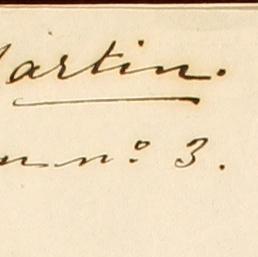 Martin.
n nº 3.